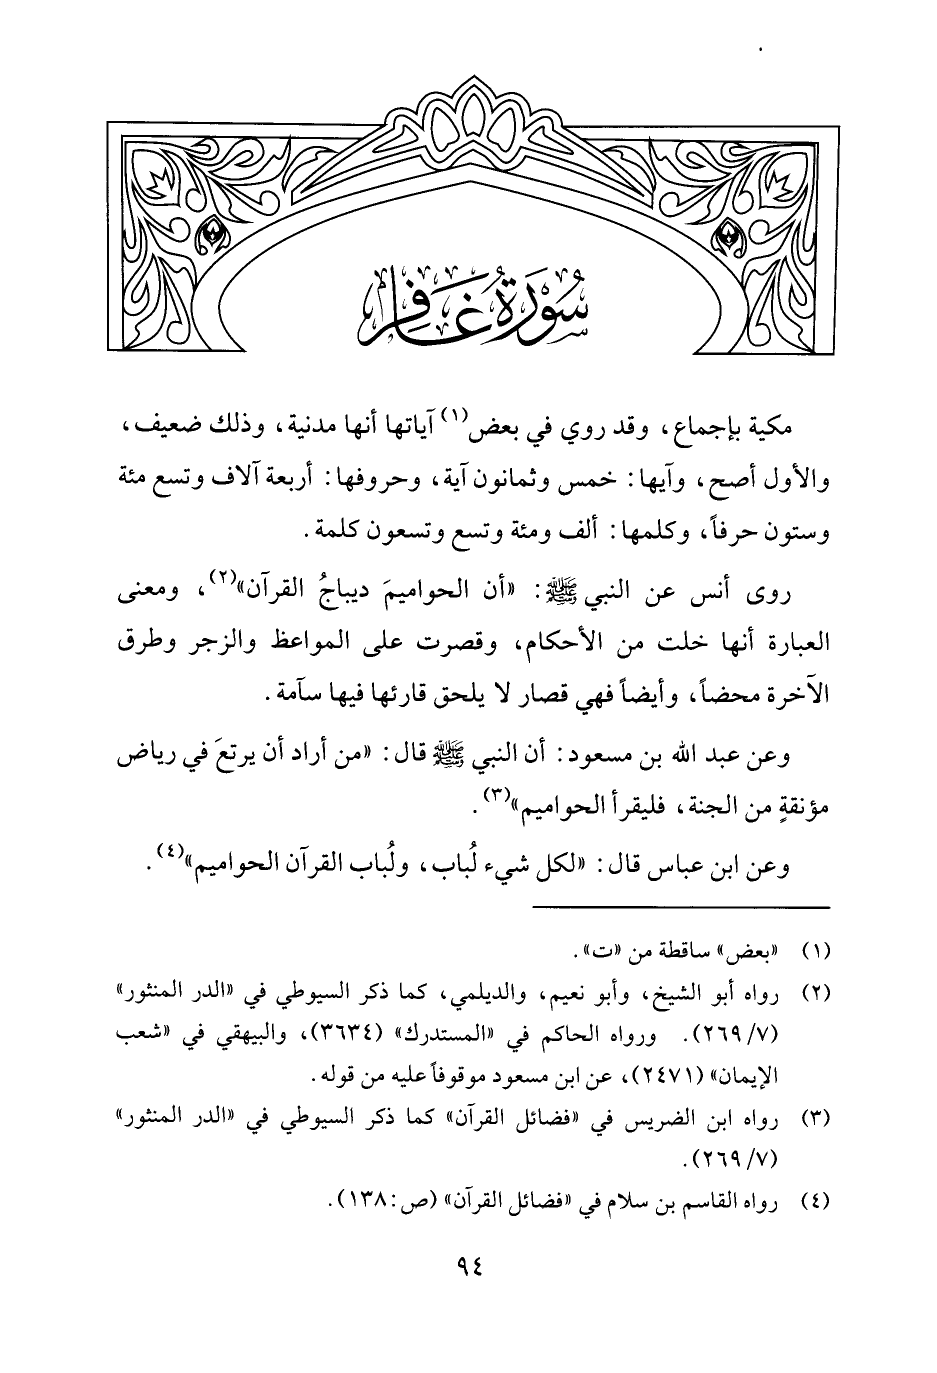 سُورَةُ غَافِر
مكية بإجماع، وقد روي في بعض(١) آياتها أنها مدنية، وذلك ضعيف،
والأول أصح، وآيها: خمس وثمانون آية، وحروفها: أربعة آلاف وتسع مئة
وستون حرفاً، وكلمها: ألف ومئة وتسع وتسعون كلمة.
روى أنس عن النبي ﷺ: «أن الحواميمَ ديباجُ القرآن»(٢)، ومعنى
العبارة أنها خلت من الأحكام، وقصرت على المواعظ والزجر وطرق
الآخرة محضاً، وأيضاً فهي قصار لا يلحق قارئها فيها سآمة.
وعن عبد الله بن مسعود: أن النبي ﷺ قال: «من أراد أن يرتعَ في رياض
مؤنقةٍ من الجنة، فليقرأ الحواميم»(٣).
وعن ابن عباس قال: «لكل شيء لُباب، ولُباب القرآن الحواميم»(٤).
(١) «بعض» ساقطة من «ت».
(٢) رواه أبو الشيخ، وأبو نعيم، والديلمي، كما ذكر السيوطي في «الدر المنثور»
(٧/ ٢٦٩). ورواه الحاكم في «المستدرك» (٣٦٣٤)، والبيهقي في «شعب
الإيمان» (٢٤٧١)، عن ابن مسعود موقوفاً عليه من قوله.
(٣) رواه ابن الضريس في «فضائل القرآن» كما ذكر السيوطي في «الدر المنثور»
(٧/ ٢٦٩).
(٤) رواه القاسم بن سلام في «فضائل القرآن» (ص: ١٣٨).
٩٤